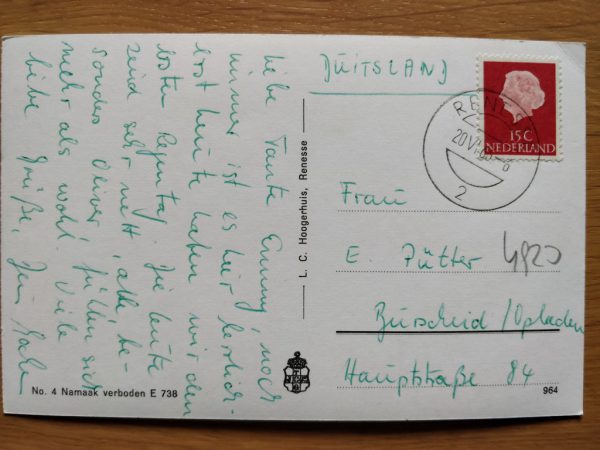 Liebe Tante Emmy, noch
immer ist es hier herrlich.
erst heute haben wir den
ersten Regentag. Die Leute
sind sehr nett, alle, be-
sonders Oliver, fühlen sich
mehr als wohl. Viele
liebe Grüße,
L. C. Hoogerhuis, Renesse
DUITSLAND
REN
20 VI
2
15C
NEDERLAND
Frau
E. Pütter
Burscheid / Opladen
Hauptstraße 84
No. 4 Namaak verboden E 738
964